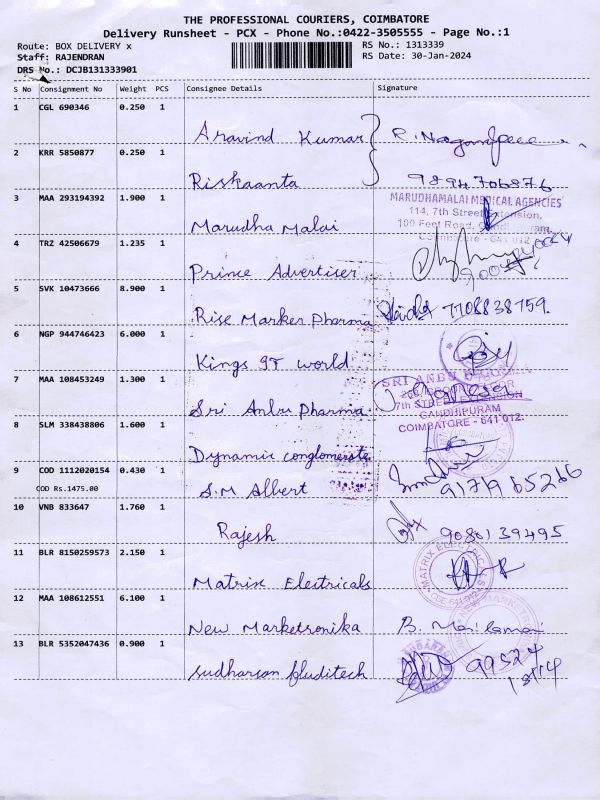 THE PROFESSIONAL COURIERS, COIMBATORE
Delivery Runsheet - PCX - Phone No.:0422-3505555 - Page No.:1
Route: BOX DELIVERY x
RS No.: 1313339
Staff: RAJENDRAN
RS Date: 30-Jan-2024
DRS No.: DCJB131333901
S No Consignment No Weight PCS Consignee Details Signature
1 CGL 690346 0.250 1 Aravind Kumar
2 KRR 5850877 0.250 1 Riskaanta 9894706876
3 MAA 293194392 1.900 1 Marudha Malai
MARUDHAMALAI MEDICAL AGENCIES
114, 7th Street Extension,
100 Feet Road,
Coimbatore - 641 012
4 TRZ 42506679 1.235 1 Prince Advertiser
5 SVK 10473666 8.900 1 Rise Marker Pharma 7708838759.
6 NGP 944746423 6.000 1 Kings GT world
7 MAA 108453249 1.300 1 Sri Anbu Pharma
SRI ANBU
7th STREET EXTENSION
GANDHIPURAM
COIMBATORE - 641 012.
8 SLM 338438806 1.600 1 Dynamic conglomerate
9 COD 1112020154 0.430 1 S.M Albert
COD Rs.1475.00
10 VNB 833647 1.760 1 Rajesh
11 BLR 8150259573 2.150 1 Matrix Electricals
MATRIX ELECTRICALS
12 MAA 108612551 6.100 1 New Marketronika
13 BLR 5352047436 0.900 1 Sudharsan fluditech